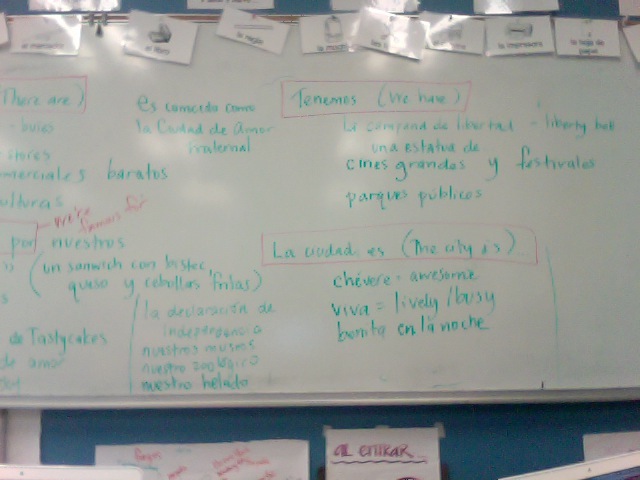 el libro
la regla
la impresora
la hoja de
papel
There are)
es conocido como
la Ciudad de Amor
fraternal
Tenemos (We have)
la campana de libertad - liberty bell
una estatua de
cines grandes y festivales
parques públicos
stores
comerciales baratos
culturas
we're
famous for
por nuestros
(un sanwich con bistec,
queso y cebollas fritas)
de Tastycakes
de amor
la declaración de
independencia
nuestros museos
nuestro zoológico
nuestro helado
La ciudad es (The city is)
chévere = awesome
viva = lively/busy
bonita en la noche
AL ENTRAR